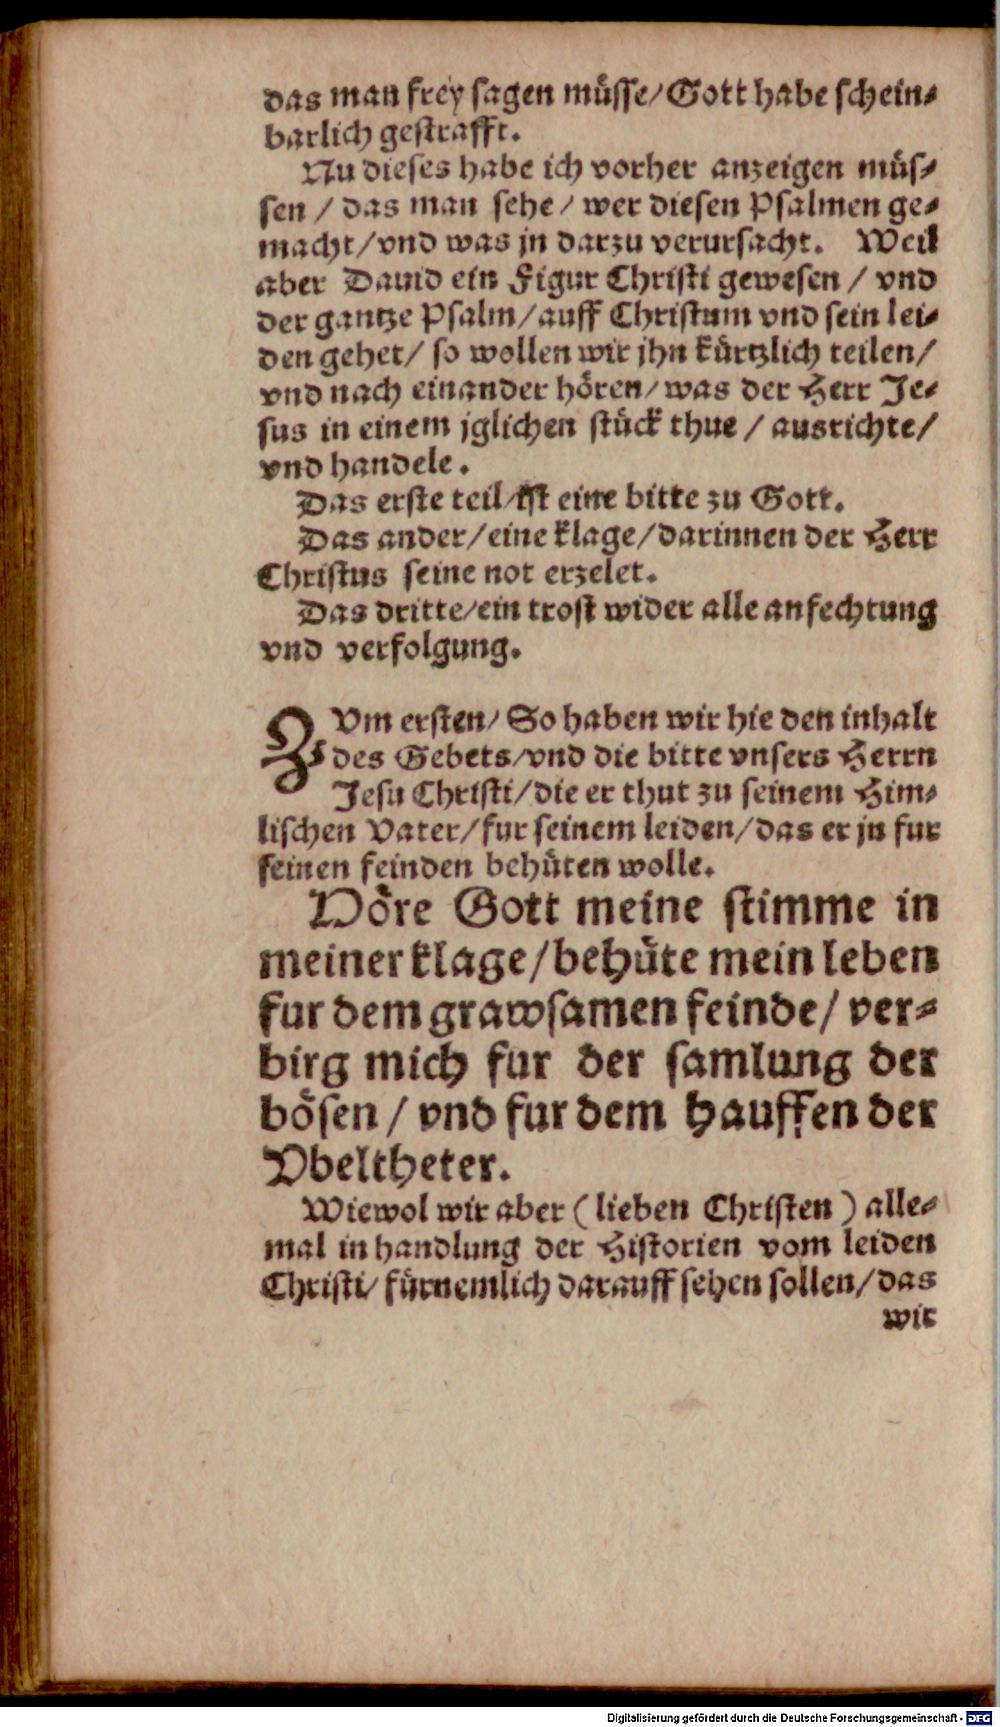 das man frey sagen müsse/Gott habe schein⸗
barlich gestrafft.
Nu dieses habe ich vorher anzeigen müs⸗
sen / das man sehe / wer diesen Psalmen ge⸗
macht/vnd was jn darzu verursacht. Weil
aber Dauid ein Figur Christi gewesen / vnd
der gantze Psalm/auff Christum vnd sein lei⸗
den gehet/ so wollen wir jhn kürtzlich teilen/
vnd nach einander hören/was der Herr Je⸗
sus in einem jglichen stück thue / ausrichte/
vnd handele.
Das erste teil/ist eine bitte zu Gott.
Das ander/eine klage/darinnen der Herr
Christus seine not erzelet.
Das dritte/ein trost wider alle anfechtung
vnd verfolgung.
ZVm ersten/ So haben wir hie den inhalt
des Gebets/vnd die bitte vnsers Herrn
Jesu Christi/die er thut zu seinem Him⸗
lischen Vater/fur seinem leiden/das er jn fur
seinen feinden behüten wolle.
Höre Gott meine stimme in
meiner klage/behüte mein leben
fur dem grawsamen feinde/ ver⸗
birg mich fur der samlung der
bösen / vnd fur dem hauffen der
Vbeltheter.
Wiewol wir aber (lieben Christen) alle⸗
mal in handlung der Historien vom leiden
Christi/ fürnemlich darauff sehen sollen/das
wir
Digitalisierung gefördert durch die Deutsche Forschungsgemeinschaft - DFG